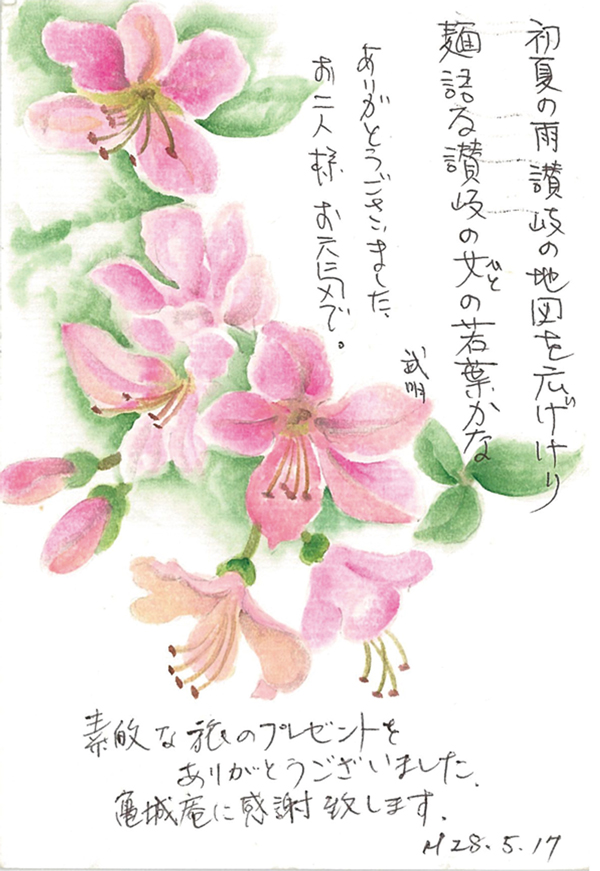 初夏の雨讃岐の地図を広げけり
麺語る讃岐の女の若葉かな
ひと
武明
ありがとうございました、
お二人様 お元気で。
素敵な旅のプレゼントを
ありがとうございました。
亀城庵に感謝致します。
H28.5.17